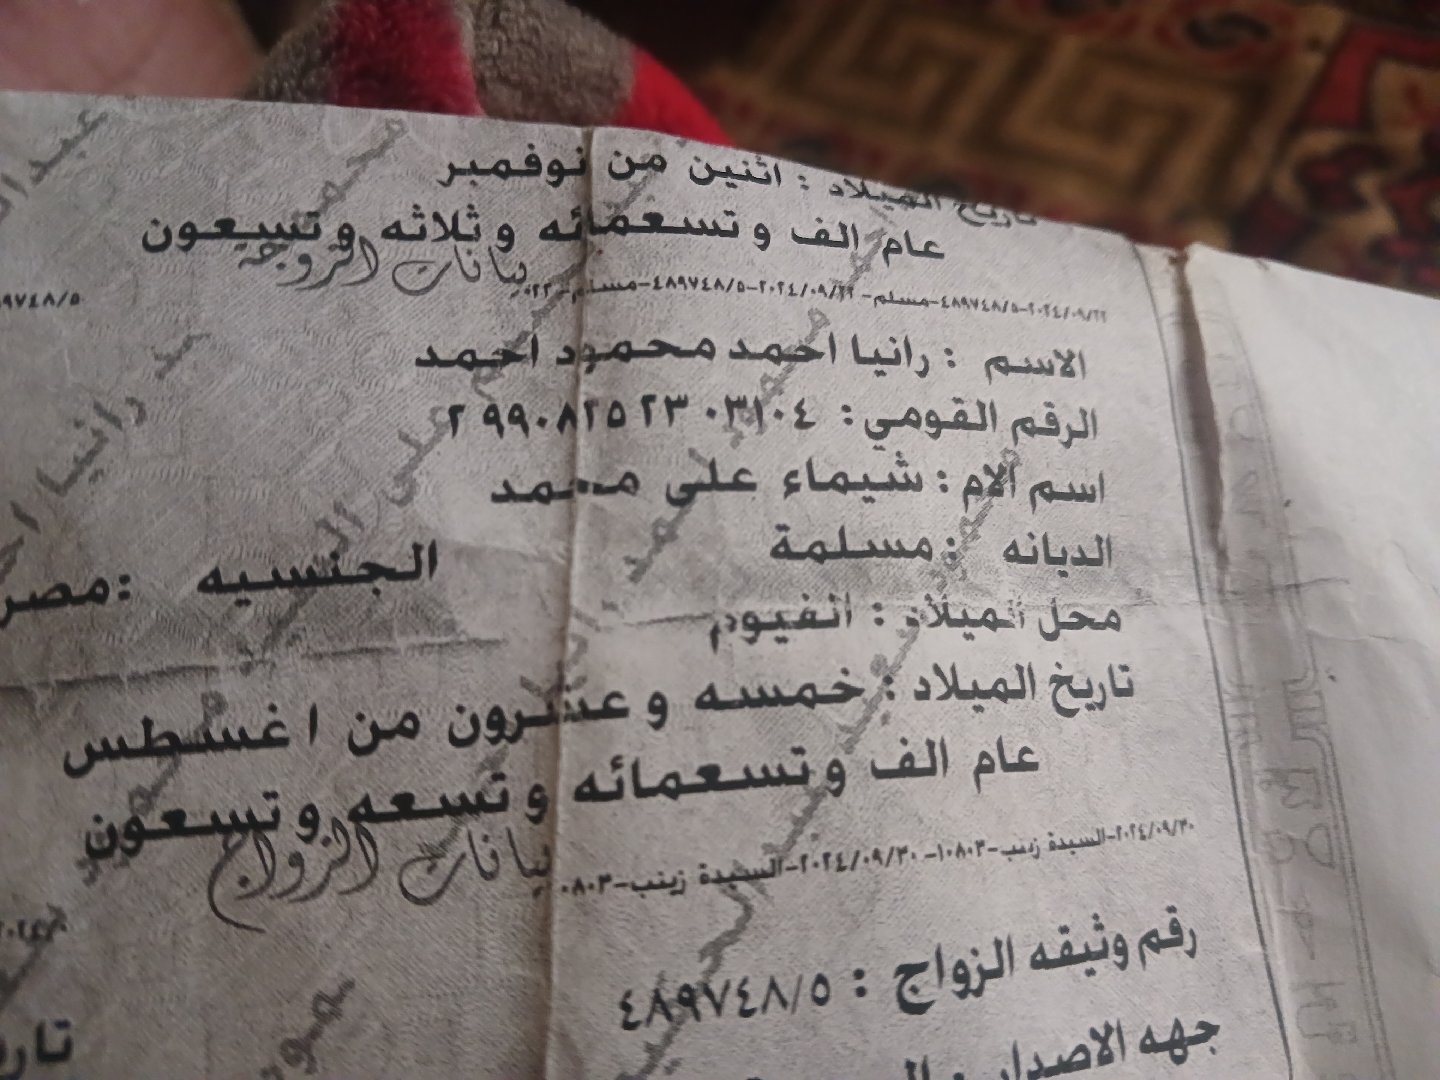 تاريخ الميلاد : اثنين من نوفمبر
عام الف وتسعمائه وثلاثه وتسعون
بيانات الزوجة
الاسم : رانيا احمد محمود احمد
الرقم القومي : ٢٩٩٠٨٢٥٢٣٠٣١٠٤
اسم الام : شيماء على محمد
الديانه : مسلمة
الجنسيه : مصر
محل الميلاد : الفيوم
تاريخ الميلاد : خمسه وعشرون من اغسطس
عام الف وتسعمائه وتسعه وتسعون
بيانات الزواج
٢٠٢٤/٠٩/٣٠-السيدة زينب-١٠٨٠٣-٢٠٢٤/٠٩/٣٠-السيدة زينب-
رقم وثيقه الزواج : ٤٨٩٧٤٨/٥
جهه الاصدار :